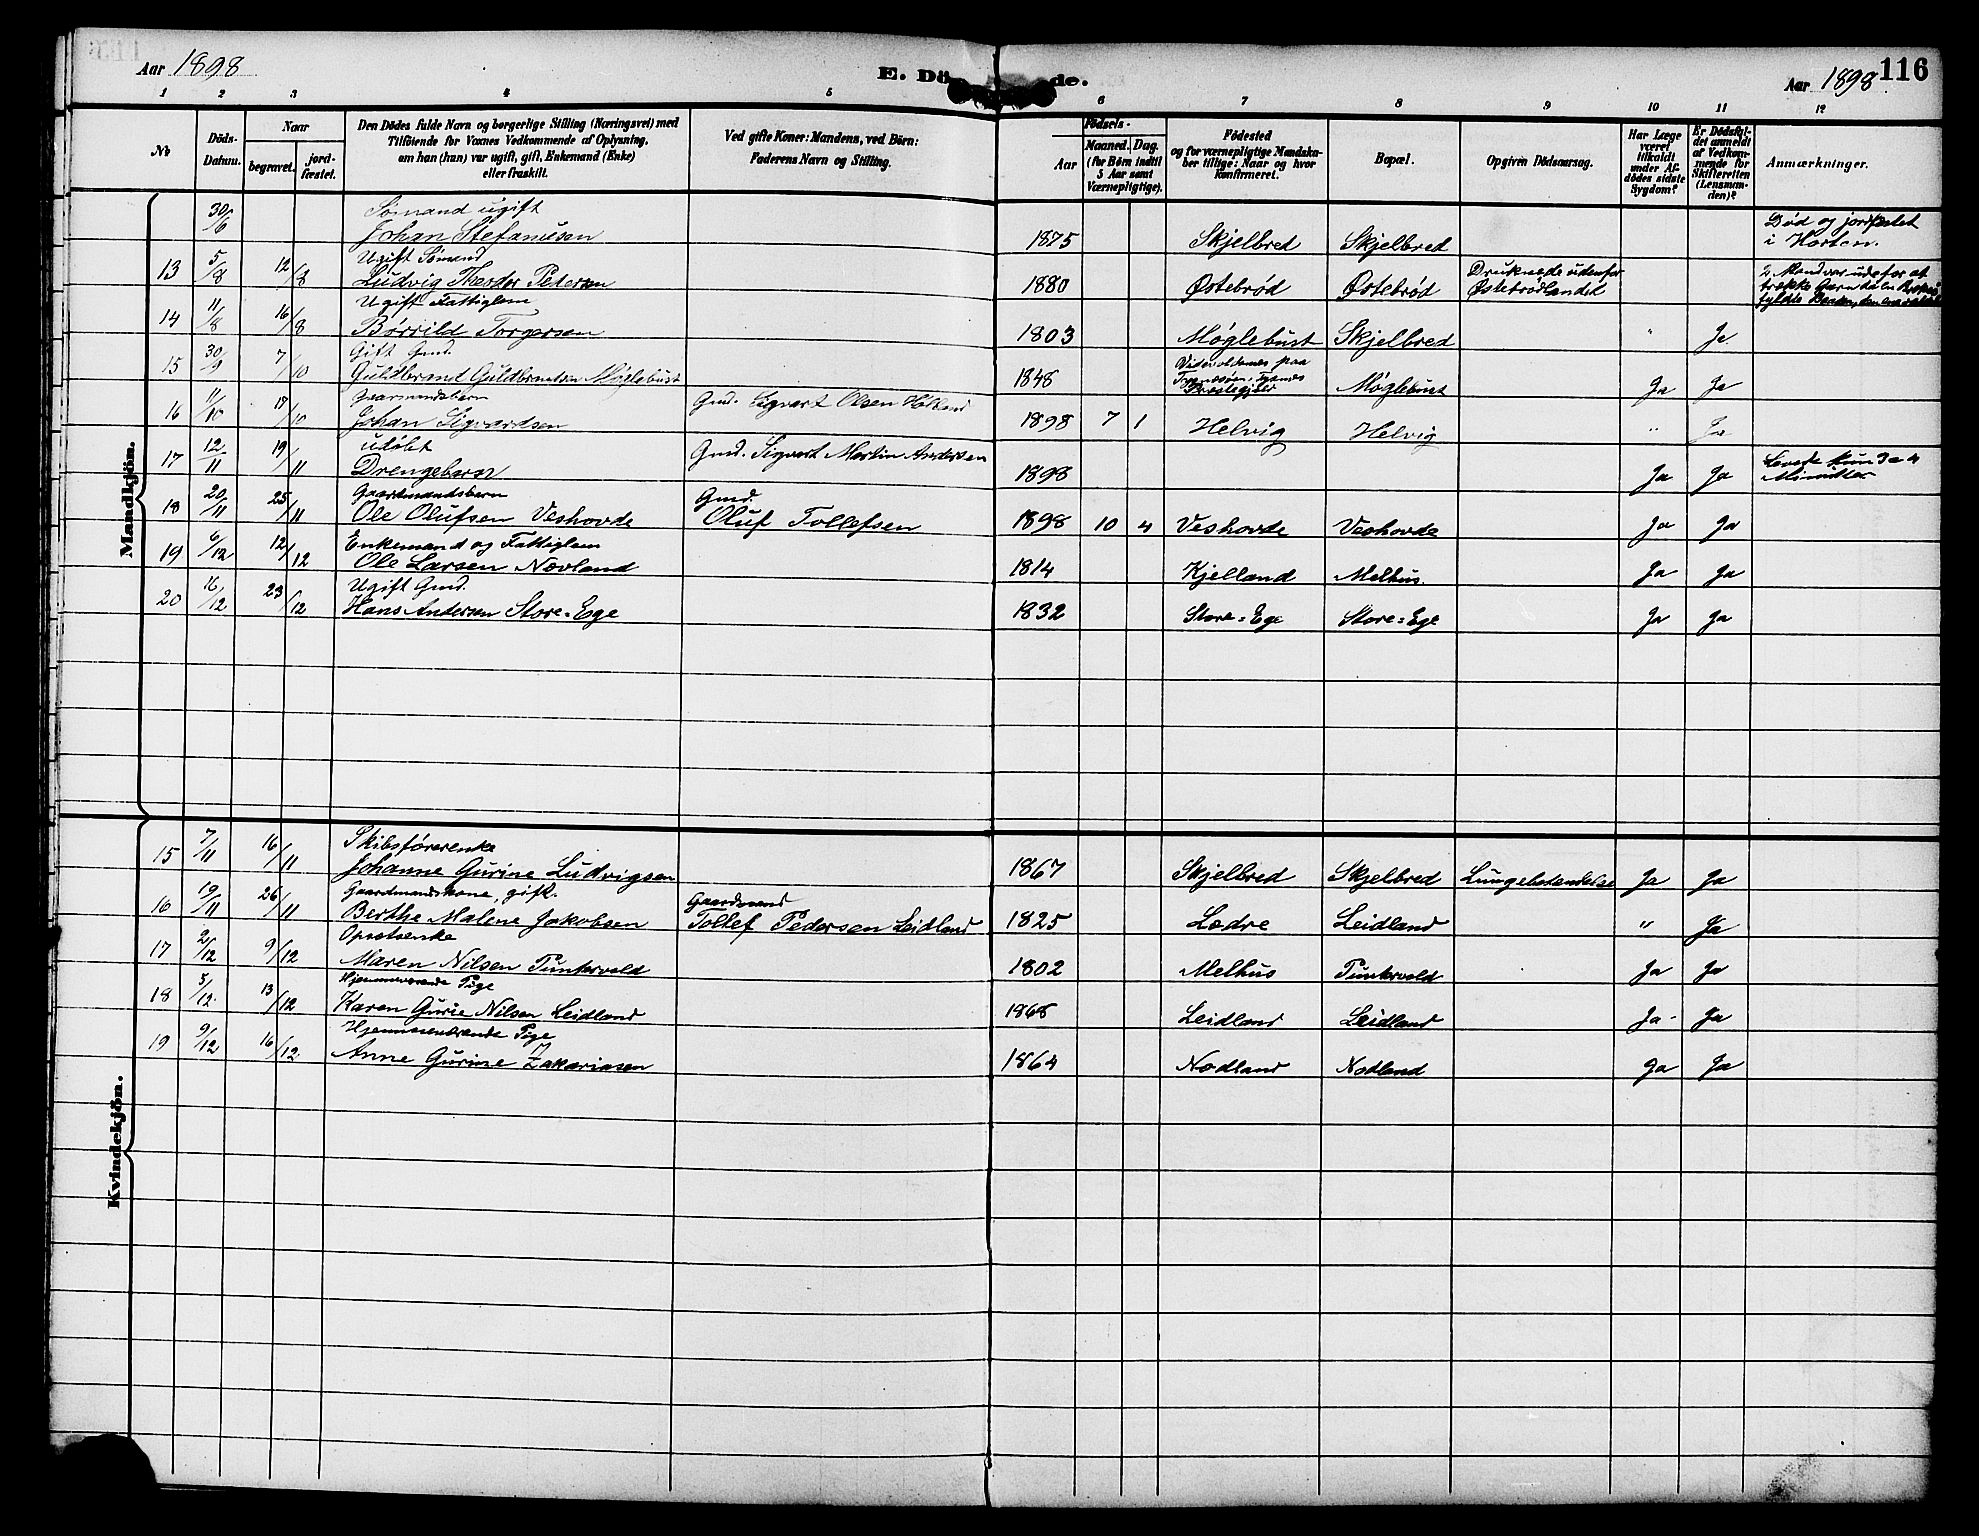 Aar 1898
E. Dö de.
Aar 1898
116
1 2 3 4 5 6 7 8 9 10 11 12
No
Döds-Datum.
Naar
begravet.
jordfæstet.
Den Dödes fulde Navn og borgerlige Stilling (Næringsvei) med
Tilföiende for Voxnes Vedkommende af Oplysning,
om han (hun) var ugift, gift, Enkemand (Enke)
eller fraskilt.
Ved gifte Koner: Mandens, ved Börn:
Faderens Navn og Stilling.
Födsels-
Aar
Maaned. Dag.
(for Börn indtil
5 Aar samt
Værnepligtige).
Födested
og for værnepligtige Mandskaber
tillige: Naar og hvor
konfirmeret.
Bopæl.
Opgiven Dödsaarsag.
Har Læge
været
tilkaldt
under Afdödes
sidste
Sygdom?
Er Dödsfaldet
anmeldt
af Vedkommende
for
Skifteretten
(Lensmanden)?
Anmærkninger.
Mandkjön.
30/6 Sømand ugift
Johan Stefanusen 1875 Skjelbred Skjelbred Død og jordfæstet
i Horten.
13 5/8 12/8 Ugift Sømand
Ludvig Theodor Petersen 1880 Østebrød Østebrød Druknede udenfor
Østebrødlandet 2 Mand var ude for at
trække Garn da en
fyldte
14 11/8 16/8 Ugift Fattiglem
Børrild Torgersen 1803 Møglebust Skjelbred " Ja
15 30/9 7/10 Gift Gmd.
Guldbrand Guldbrandsen Møglebust 1848 paa
Præstegjeld Møglebust Ja Ja
16 11/10 18/10 Gaarmandsbarn
Johan Sigvardsen Gmd. Sigvart Olsen 1898 7 1 Helvig Helvig " Ja
17 12/11 19/11 udøbt
Drengebarn Gmd. Sigvart Martin Andersen 1898 Ja Ja Levede kun 3 a 4
Minutter
18 20/11 25/11 Gaardmandsbarn
Ole Olufsen Veshovde Gmd.
Oluf Tollefsen 1898 10 4 Veshovde Veshovde Ja Ja
19 6/12 12/12 Enkemand og Fattiglem
Ole Larsen Nøvland 1814 Kjelland Melhus. Ja Ja
20 16/12 23/12 Ugift Gmd.
Hans Andersen Store=Ege 1832 Store=Ege Store=Ege Ja Ja
Kvindekjön.
15 7/11 16/11 Skibsførerenke
Johanne Gurine Ludvigsen 1867 Skjelbred Skjelbred Lungebetændelse Ja Ja
16 19/11 26/11 Gaardmandskone, gift.
Berthe Malene Jakobsen Gaardmand
Tollef Pedersen Leidland 1825 Lædre Leidland " Ja
17 2/12 9/12
Maren Nilsen Puntervold 1802 Melhus Puntervold Ja Ja
18 5/12. 13/12 Hjemmeværende Pige
Karen Gurie Nilsen Leidland 1868 Leidland Leidland Ja Ja
19 9/12 16/12 Hjemmeværende Pige
Anne Gurine Zakariasen 1864 Nodland Nodland Ja Ja